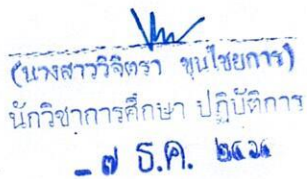 (นางสาววิจิตรา ขุนไชยการ)
นักวิชาการศึกษา ปฏิบัติการ
- ๗ ธ.ค.